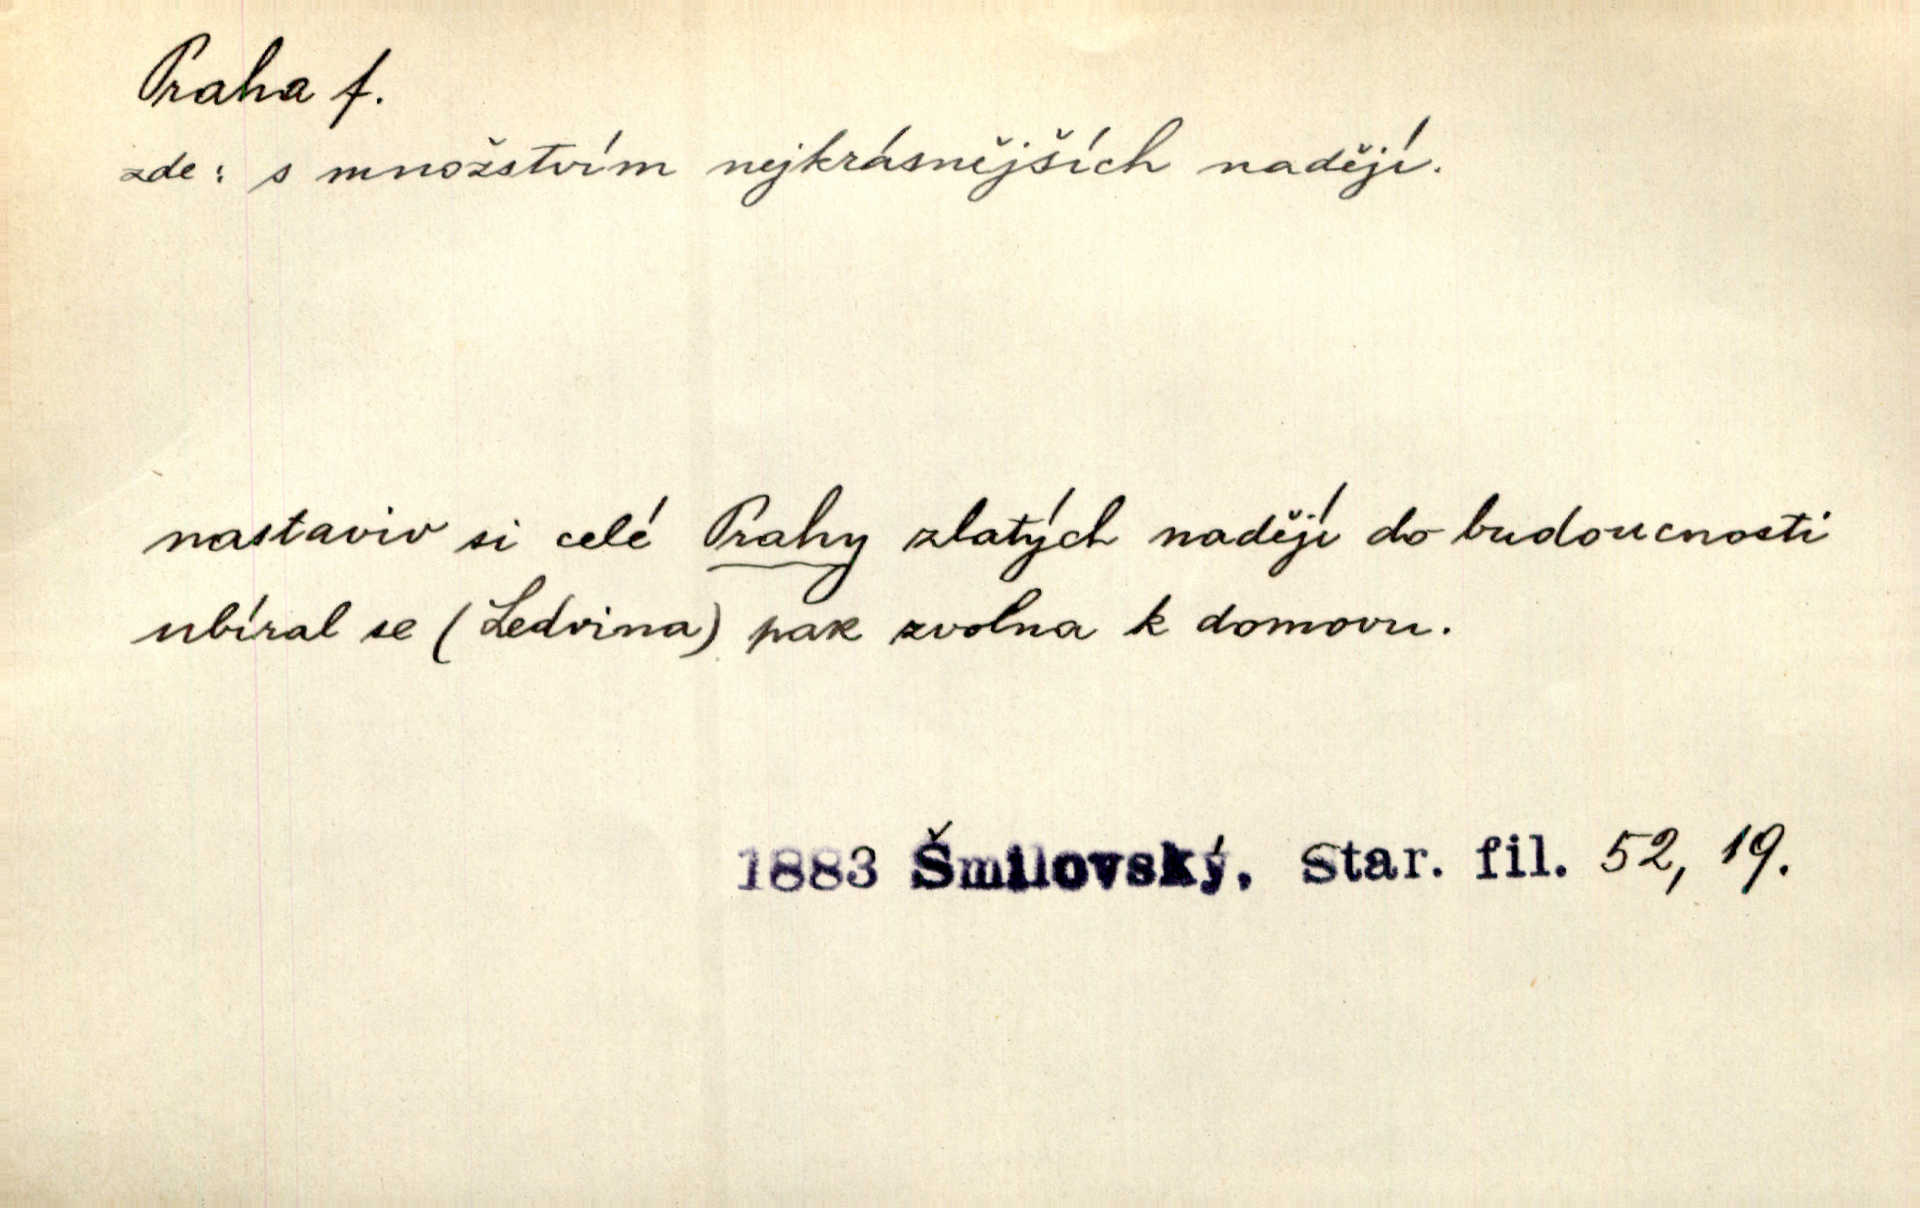 Praha f.
zde: s množstvím nejkrásnějších nadějí.
nastaviv si celé Prahy zlatých nadějí do budoucnosti
ubíral se (Ledvina) pak zvolna k domovu.
1883 Šmilovský, Star. fil. 52, 19.